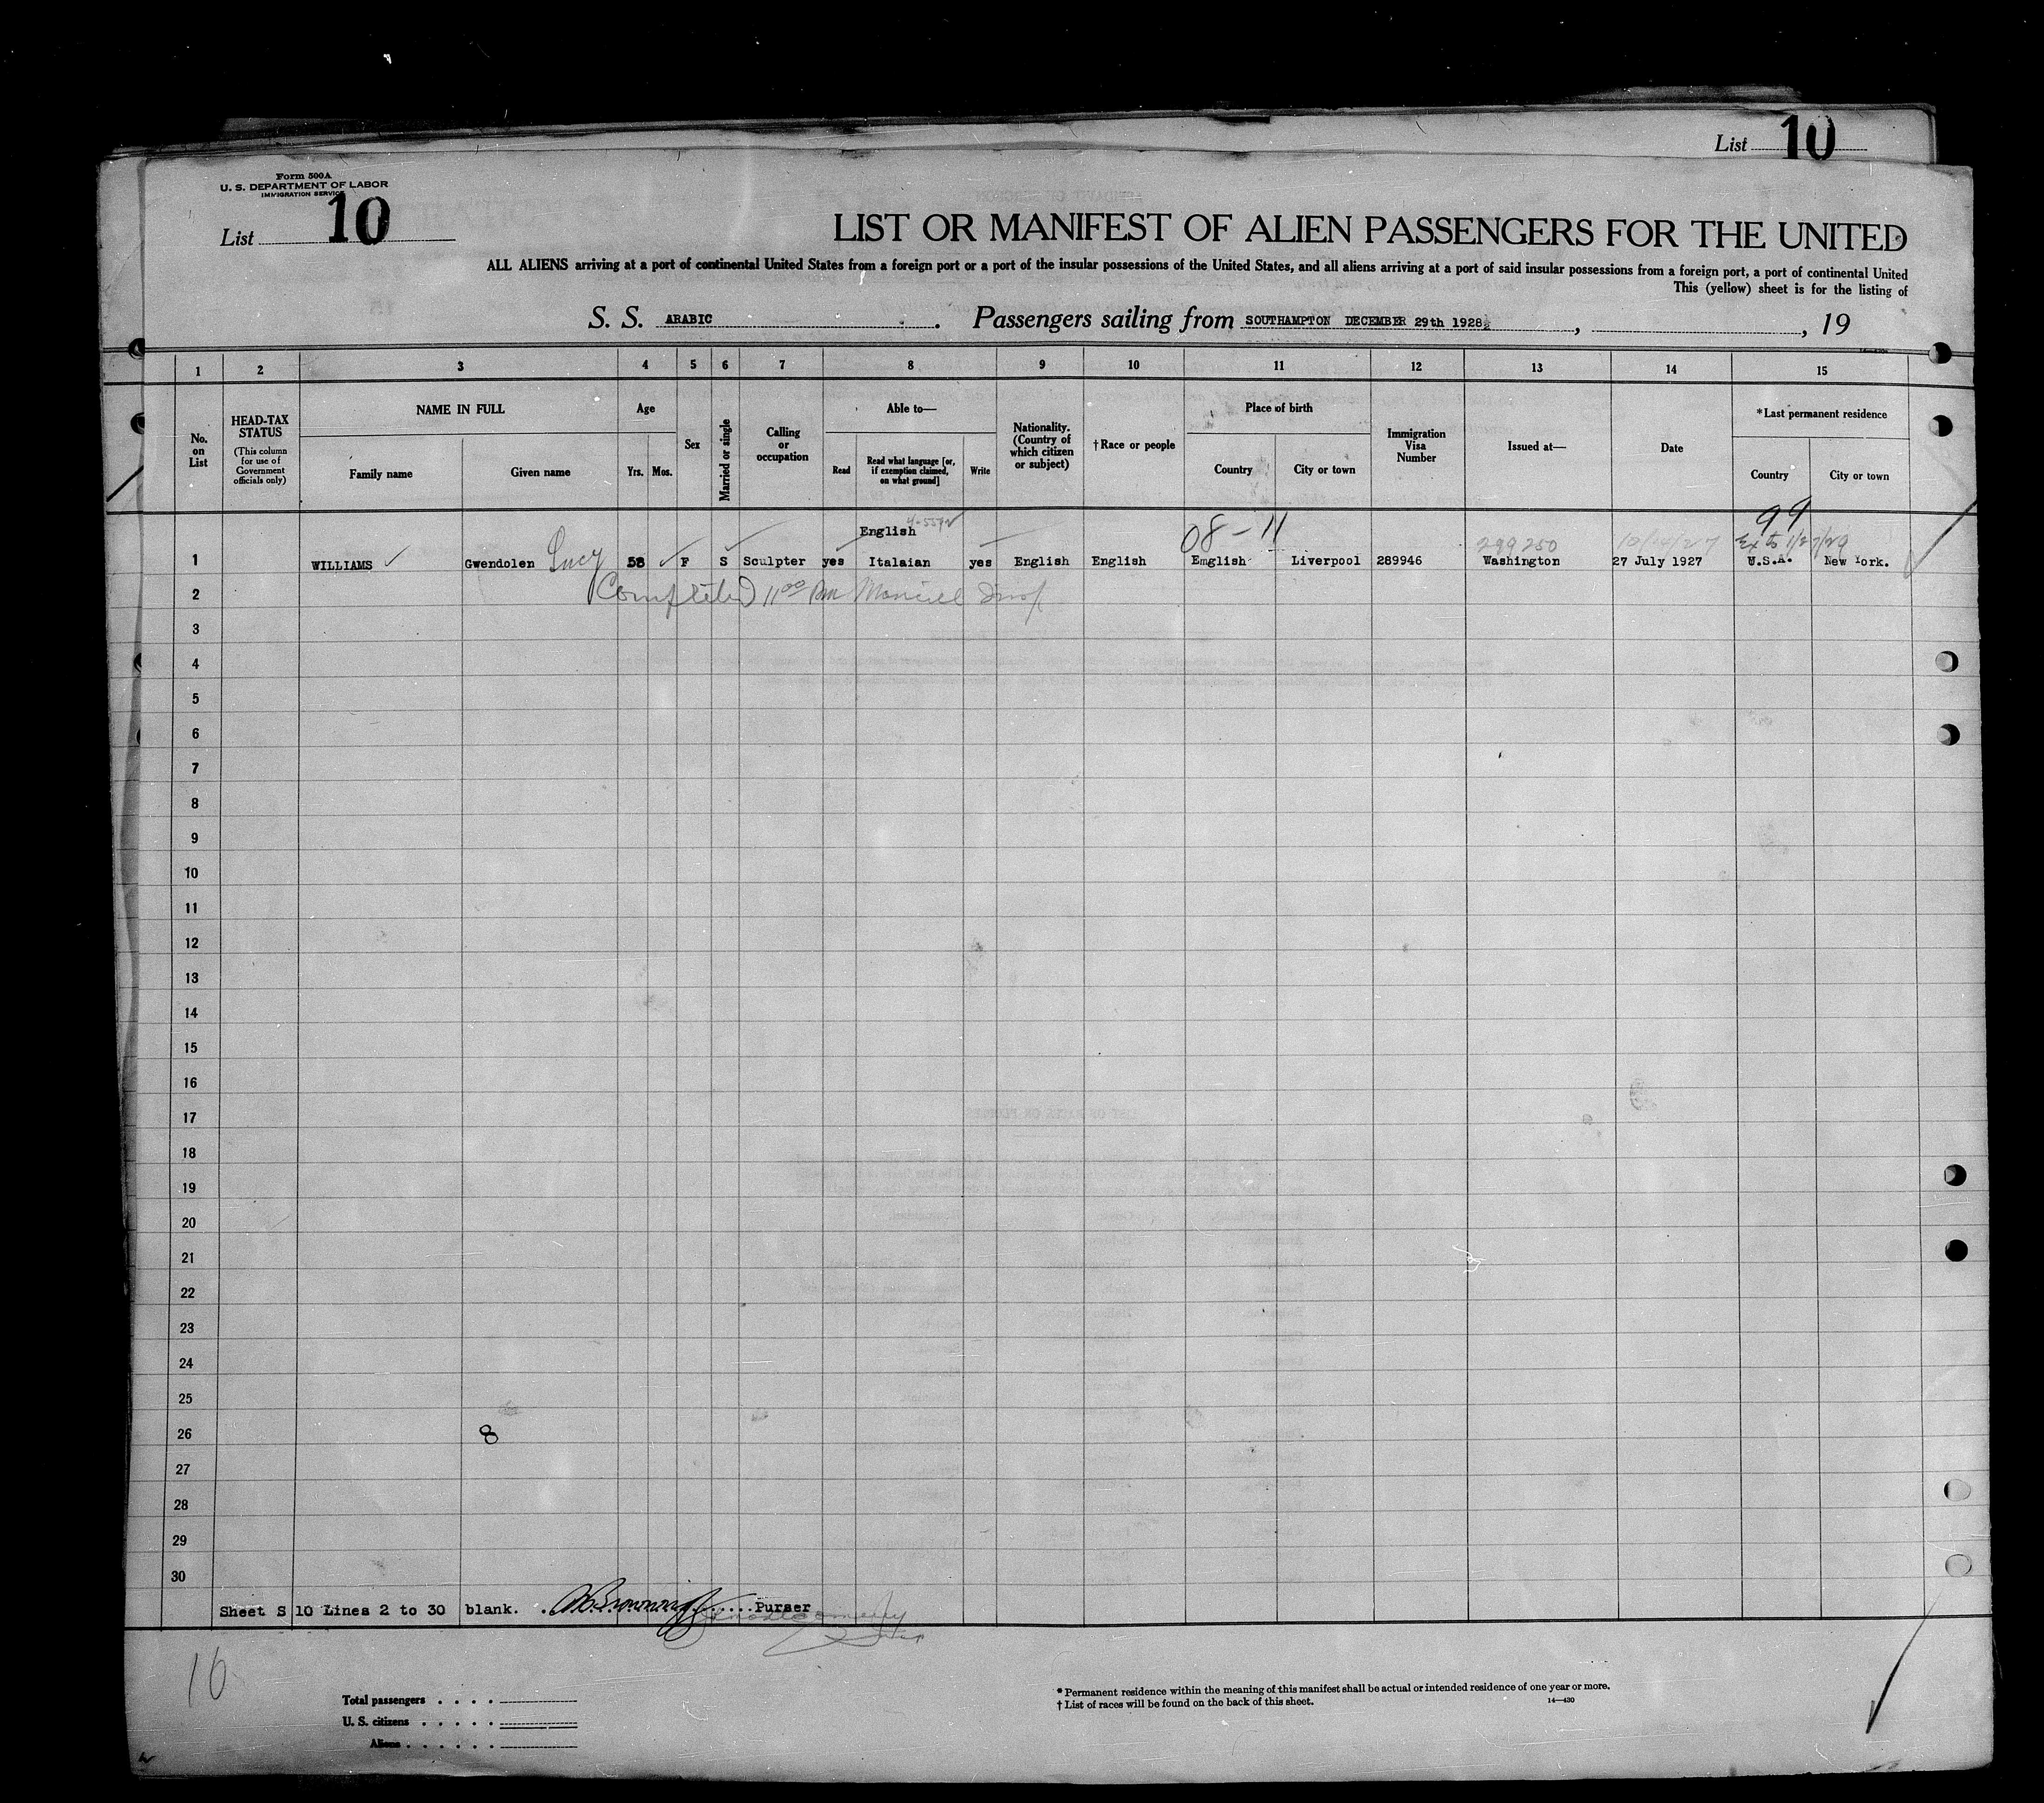 List 10
Form 500A
U. S. DEPARTMENT OF LABOR
IMMIGRATION SERVICE
List 10
LIST OR MANIFEST OF ALIEN PASSENGERS FOR THE UNITED
ALL ALIENS arriving at a port of continental United States from a foreign port or a port of the insular possessions of the United States, and all aliens arriving at a port of said insular possessions from a foreign port, a port of continental United
This (yellow) sheet is for the listing of
S. S. ARABIC . Passengers sailing from SOUTHAMPTON DECEMBER 29th 1928 , , 19
1 2 3 4 5 6 7 8 9 10 11 12 13 14 15
No. on List
HEAD-TAX STATUS
(This column for use of Government officials only)
NAME IN FULL
Family name
Given name
Age
Yrs. Mos.
Sex
Married or single
Calling or occupation
Able to—
Read
Read what language [or, if exemption claimed, on what ground]
Write
Nationality. (Country of which citizen or subject)
†Race or people
Place of birth
Country
City or town
Immigration Visa Number
Issued at—
Date
*Last permanent residence
Country
City or town
99
English
08-11
299250
10/14/27
1 WILLIAMS Gwendolen Lucy 58 F S Sculpter yes Italaian yes English English Emglish Liverpool 289946 Washington 27 July 1927 U.S.A. New York.
2 Completed 11 00
3
4
5
6
7
8
9
10
11
12
13
14
15
16
17
18
19
20
21
22
23
24
25
26 8
27
28
29
30
Sheet S 10 Lines 2 to 30 blank. Purser
10
Total passengers . . . .
U. S. citizens . . . . .
Aliens . . . . . .
* Permanent residence within the meaning of this manifest shall be actual or intended residence of one year or more.
† List of races will be found on the back of this sheet.
14—430